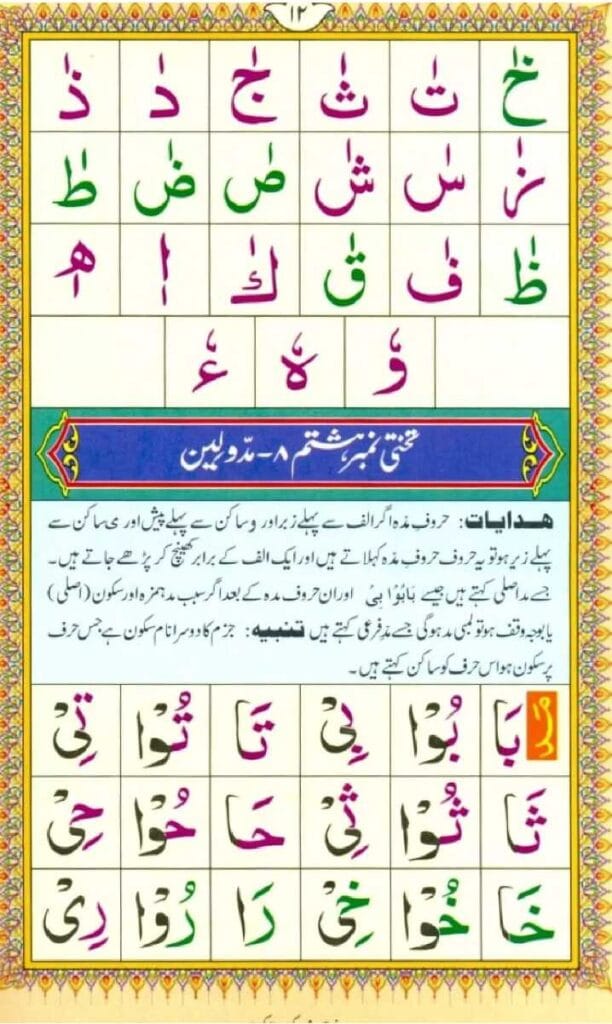 ١٢
خٰ تٰ ثٰ جٰ دٰ ذٰ
زٰ سٰ شٰ صٰ ضٰ طٰ
ظٰ فٰ قٰ كٰ اٖ هٖ
وٗ هٗ ءٗ
تختی نمبر ہشتم ۸۔ مدّ ولین
ھدایات: حروفِ مدہ اگر الف سے پہلے زبر اور و ساکن سے پہلے پیش اور ی ساکن سے
پہلے زیر ہو تو یہ حروف حروفِ مدہ کہلاتے ہیں اور ایک الف کے برابر کھینچ کر پڑھے جاتے ہیں۔
جسے مد اصلی کہتے ہیں جیسے بَا بُوْا بِیْ اور ان حروف مدہ کے بعد اگر سبب مد ہمزہ اور سکون (اصلی)
یا بوجہ وقف ہو تو لمبی مد ہوگی جسے مدِ فرعی کہتے ہیں تنبیہ: جزم کا دوسرا نام سکون ہے جس حرف
پر سکون ہو اس حرف کو ساکن کہتے ہیں۔
مدہ بَا بُوْا بِیْ تَا تُوْا تِیْ
ثَا ثُوْا ثِیْ حَا حُوْا حِیْ
خَا خُوْا خِیْ رَا رُوْا رِیْ